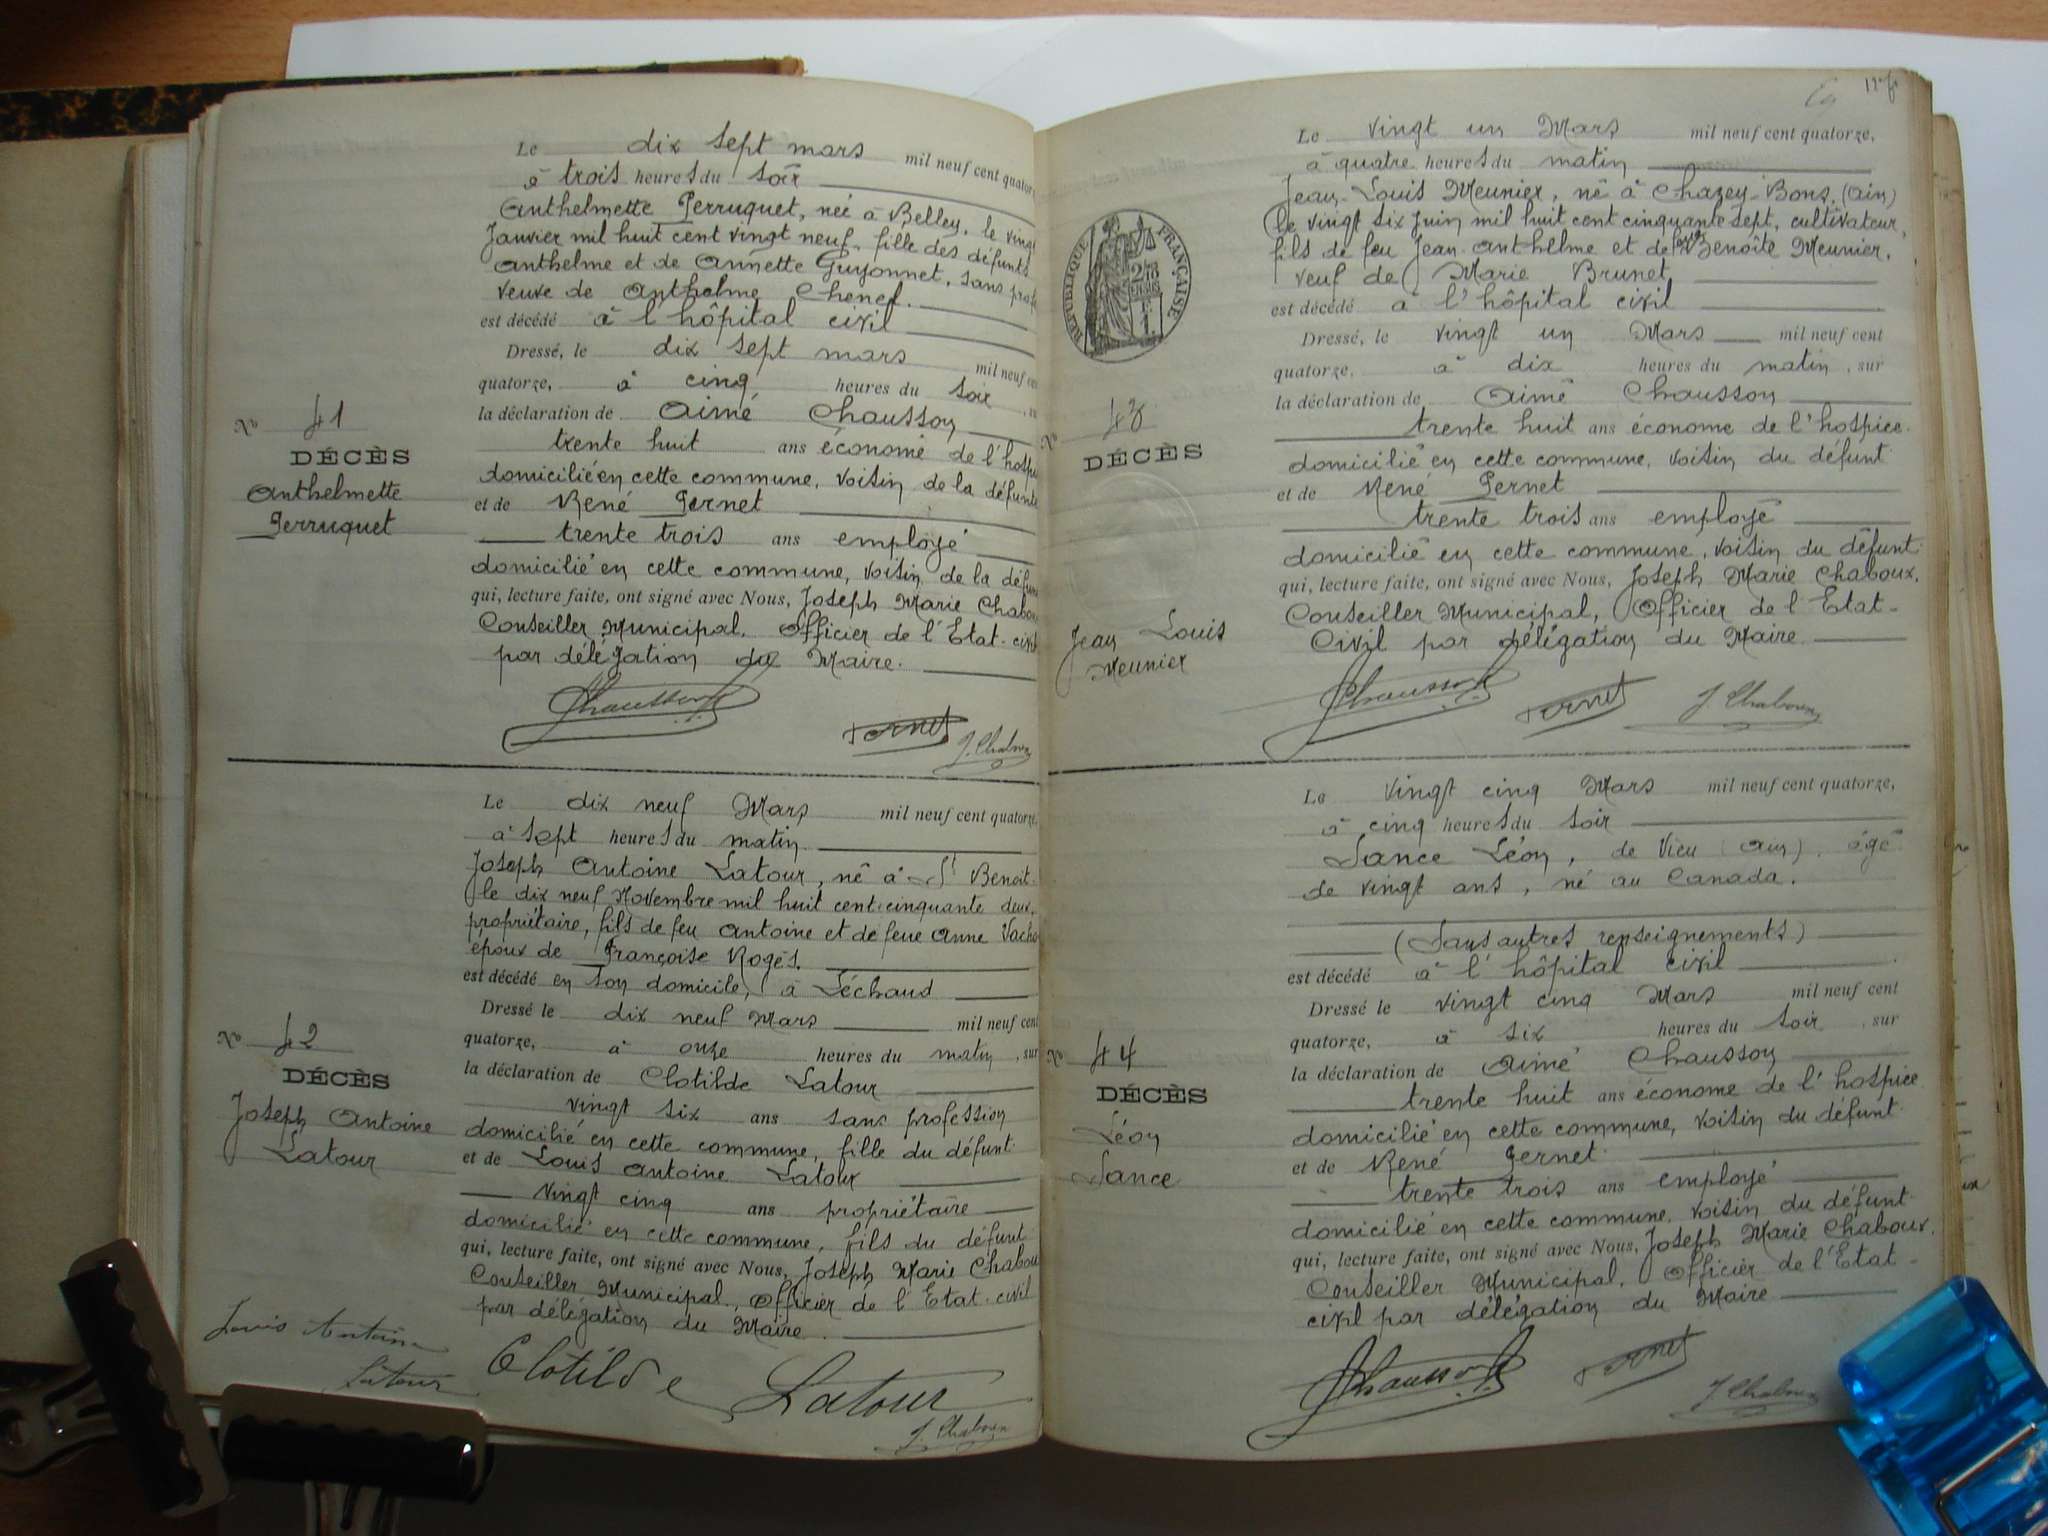 Le dix sept mars mil neuf cent quatorze
à trois heures du soir
Anthelmette Perruquet, née à Belley, le vingt
Janvier mil huit cent vingt neuf, fille des défunts
Anthelme et de Annette Guyonnet, sans prof
veuve de Anthelme Chenel.
est décédé à l'hôpital civil
Dressé, le dix sept mars mil neuf cen
quatorze, à cinq heures du soir
la déclaration de Aimé Chausson
trente huit ans économe de l'hospi
domicilié en cette commune, voisin de la défunte
et de René Pernet
trente trois ans employé
domicilié en cette commune, voisin de la défun
qui, lecture faite, ont signé avec Nous, Joseph Marie Chabou
Conseiller Municipal, Officier de l'Etat-civil
par délégation du Maire.
No 41
DÉCÈS
Anthelmette
Perruquet
Chausson Pernet J. Chaboux
Le dix neuf Mars mil neuf cent quatorze,
à sept heures du matin
Joseph Antoine Latour, né à St Benoit
le dix neuf Novembre mil huit cent cinquante deux,
propriétaire, fils de feu Antoine et de feue Anne Vacho
époux de Françoise Rogès.
est décédé en son domicile, à Léchaud
Dressé le dix neuf Mars mil neuf cent
quatorze, à onze heures du matin, sur
la déclaration de Clotilde Latour
vingt six ans sans profession
domicilié en cette commune, fille du défunt
et de Louis Antoine Latour
vingt cinq ans propriétaire
domicilié en cette commune, fils du défunt
qui, lecture faite, ont signé avec Nous, Joseph Marie Chabou
Conseiller Municipal, Officier de l'Etat-civil
par délégation du Maire.
No 42
DÉCÈS
Joseph Antoine
Latour
Louis Antoine
Latour
Clotilde Latour
J. Chaboux
Le vingt un Mars mil neuf cent quatorze,
à quatre heures du matin
Jean-Louis Meunier, né à Chazey-Bons, (Ain)
le vingt six Juin mil huit cent cinquante sept, cultivateur,
fils de feu Jean-Anthelme et de feue Benoîte Meunier,
veuf de Marie Brunet
est décédé à l'hôpital civil
Dressé, le vingt un Mars mil neuf cent
quatorze, à dix heures du matin, sur
la déclaration de Aimé Chausson
trente huit ans économe de l'hospice
domicilié en cette commune, voisin du défunt
et de René Pernet
trente trois ans employé
domicilié en cette commune, voisin du défunt
qui, lecture faite, ont signé avec Nous, Joseph Marie Chaboux,
Conseiller Municipal, Officier de l'Etat-
Civil par délégation du Maire
RÉPUBLIQUE FRANÇAISE
No 43
DÉCÈS
Jean Louis
Meunier
Chausson Pernet J. Chaboux
Le vingt cinq Mars mil neuf cent quatorze,
à cinq heures du soir
Sance Léon, de Vieu (Ain), âgé
de vingt ans, né au Canada.
(Sans autres renseignements)
est décédé à l'hôpital civil
Dressé le vingt cinq Mars mil neuf cent
quatorze, à six heures du soir, sur
la déclaration de Aimé Chausson
trente huit ans économe de l'hospice
domicilié en cette commune, voisin du défunt
et de René Pernet
trente trois ans employé
domicilié en cette commune, voisin du défunt
qui, lecture faite, ont signé avec Nous, Joseph Marie Chaboux,
Conseiller Municipal, Officier de l'Etat-
civil par délégation du Maire
No 44
DÉCÈS
Léon
Sance
Chausson Pernet J. Chaboux